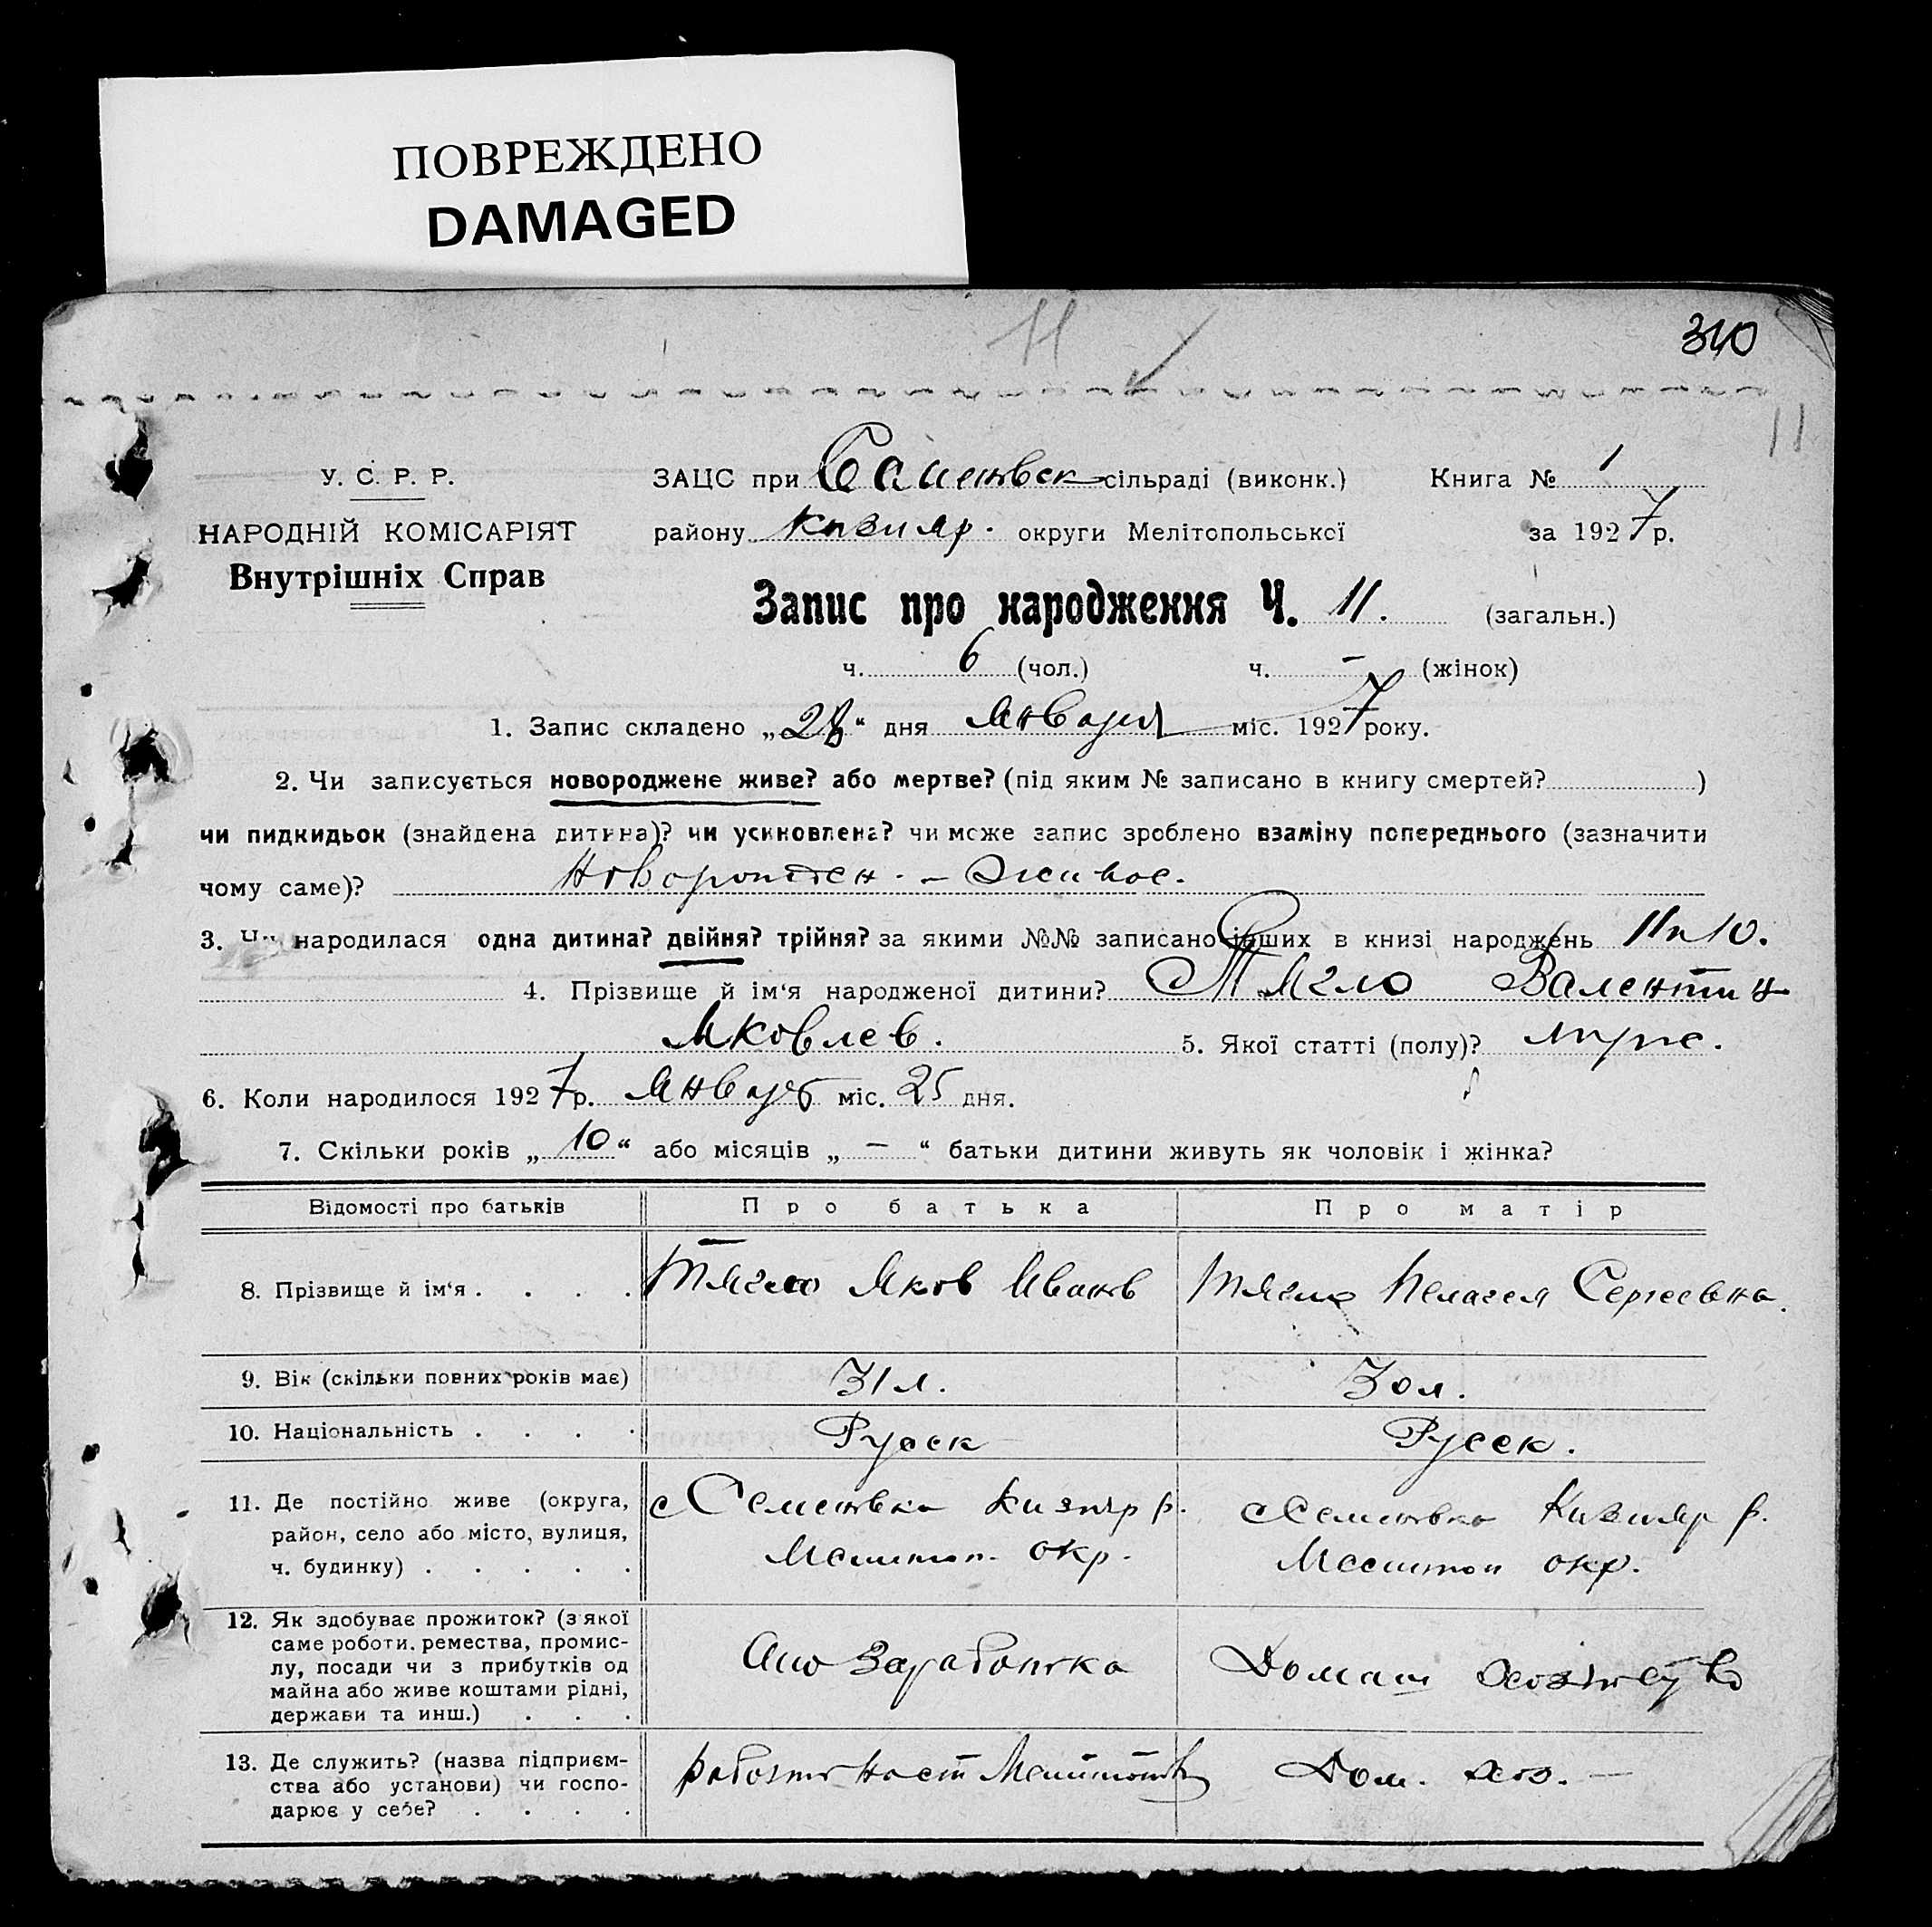 ПОВРЕЖДЕНО
DAMAGED
11
340
11
У. С. Р. Р.
НАРОДНІЙ КОМІСАРІЯТ
Внутрішніх Справ
ЗАЦС при Семеновск сільраді (виконк.) Книга № 1
району Кизияр. округи Мелітопольської за 1927 р.
Запис про народження Ч. 11. (загальн.)
ч. 6 (чол.) ч. – (жінок)
1. Запис складено „28“ дня Января міс. 1927 року.
2. Чи записується новороджене живе? або мертве? (під яким № записано в книгу смертей? )
чи пидкидьок (знайдена дитина)? чи усиновлена? чи може запис зроблено взаміну попереднього (зазначити
чому саме)? Новорожден. – Живое.
3. Чи народилася одна дитина? двійня? трійня? за якими №№ записано інших в книзі народжень 11 и 10.
4. Прізвище й ім‘я народженої дитини? Тягло Валентин
Яковлев. 5. Якої статті (полу)? мужс.
6. Коли народилося 1927 р. Января міс. 25 дня.
7. Скільки років „10“ або місяців „–“ батьки дитини живуть як чоловік і жінка?
Відомості про батьків Про батька Про матір
8. Прізвище й ім‘я . . . . Тягло Яков Иванов Тягло Пелагея Сергеевна.
9. Вік (скільки повних років має) 31 л. 30 л.
10. Національність . . . . Русск Русск.
11. Де постійно живе (округа, с Семеновка Кизияр р. с Семеновка Кизияр р.
район, село або місто, вулиця, Мелитоп. окр. Мелитоп окр.
ч. будинку) . . . . .
12. Як здобуває прожиток? (з якої
саме роботи, ремества, промис-
лу, посади чи з прибутків од заработка Домаш хозяйство
майна або живе коштами рідні,
держави та инш.) . . .
13. Де служить? (назва підприєм- Мелитоп Дом. хоз. –
ства або установи) чи госпо-
дарює у себе? . . . .